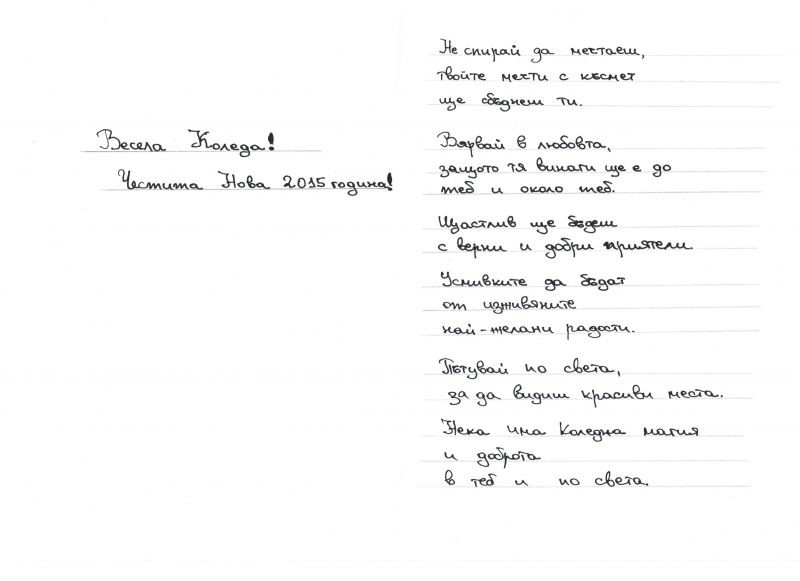 Весела Коледа!
Честита Нова 2015 година!
Не спирай да мечтаеш,
твойте мечти с късмет
ще сбъднеш ти.
Вярвай в любовта,
защото тя винаги ще е до
теб и около теб.
Щастлив ще бъдеш
с верни и добри приятели.
Усмивките да бъдат
от изживяните
най-желани радости.
Пътувай по света,
за да видиш красиви места.
Нека има Коледна магия
и доброта
в теб и по света.